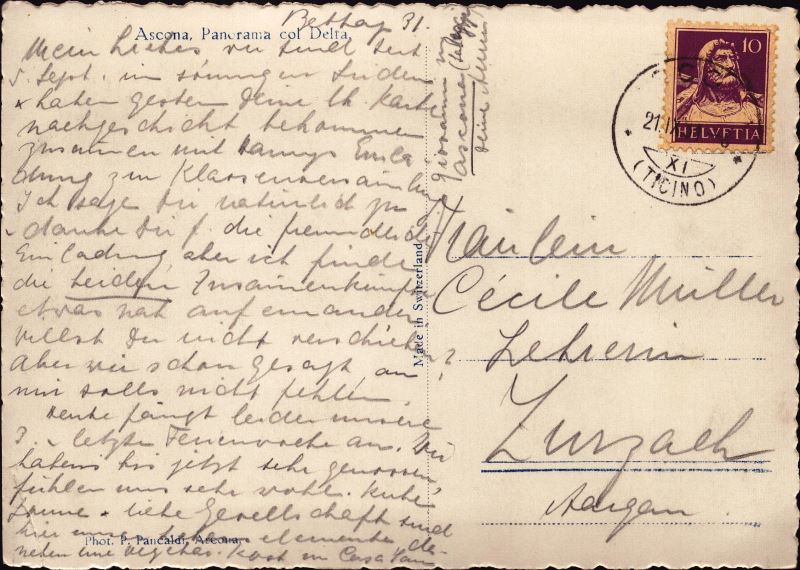 Bettag 31.
Ascona, Panorama col Delta.
Mein Liebes wir sind seit
5. Sept. im sonnigen Süden
& haben gestern Deine lb. Karte
nachgeschickt bekommen
zusammen mit Einla
dung zur Klassenversammlung
Ich sage Dir natürlich zu
danke Dir f. die freundliche
Einladung, aber ich finde
die beiden Zusammenkünfte
etwas nah aufeinander
willst Du nicht verschieben?
Aber wie schon gesagt an
mir solls nicht fehlen.
Heute fängt leider unsere
3. & letzte Ferienwoche an. Wir
habens bis jetzt sehr genossen
fühlen uns sehr wohl.
& liebe Gesellschaft sind
hier
neben uns veget. Kost in Casa
Phot. P. Pancaldi, Ascona.
Made in Switzerland
Ascona
Deine
10
HELVETIA
21. IX
XI
(TICINO)
Fräulein
Cécile Müller
Lehrerin
Zurzach
Aargau